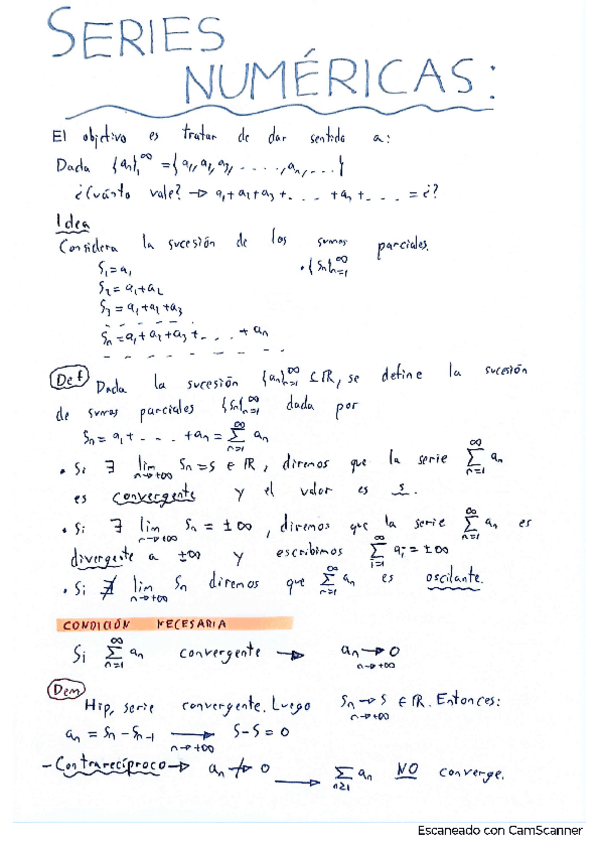 SERIES
NUMÉRICAS:
El objetivo es tratar de dar sentido a:
Dada {an}₁^∞ = {a₁, a₂, a₃, ....., an, ...}
¿Cuánto vale? → a₁+a₂+a₃+... +an+... = ¿?
Idea
Considera la sucesión de las sumas parciales.
S₁=a₁ • {Sn}_{n=1}^∞
S₂=a₁+a₂
S₃=a₁+a₂+a₃
Sn=a₁+a₂+a₃+....+an
Def Dada la sucesión {an}_{n=1}^∞ ⊆ ℝ, se define la sucesión
de sumas parciales {Sn}_{n=1}^∞ dada por
Sn= a₁+ - . . . +an = ∑_{n=1}^∞ an
• Si ∃ lim_{n→+∞} Sn=s ∈ ℝ, diremos que la serie ∑_{n=1}^∞ an
es convergente y el valor es s.
• Si ∃ lim_{n→+∞} Sn = ±∞, diremos que la serie ∑_{n=1}^∞ an es
divergente a ±∞ y escribimos ∑_{i=1}^∞ ai = ±∞
• Si ∄ lim_{n→+∞} Sn diremos que ∑_{n=1}^∞ an es oscilante.
CONDICIÓN NECESARIA
Si ∑_{n=1}^∞ an convergente → an → 0 n→+∞
Dem Hip, serie convergente. Luego Sn → s ∈ ℝ. Entonces: n→+∞
an = Sn - Sn-1 → S-S=0 n→+∞
- Contrarecíproco → an ↛ 0 → ∑_{n≥1} an NO converge.
Escaneado con CamScanner